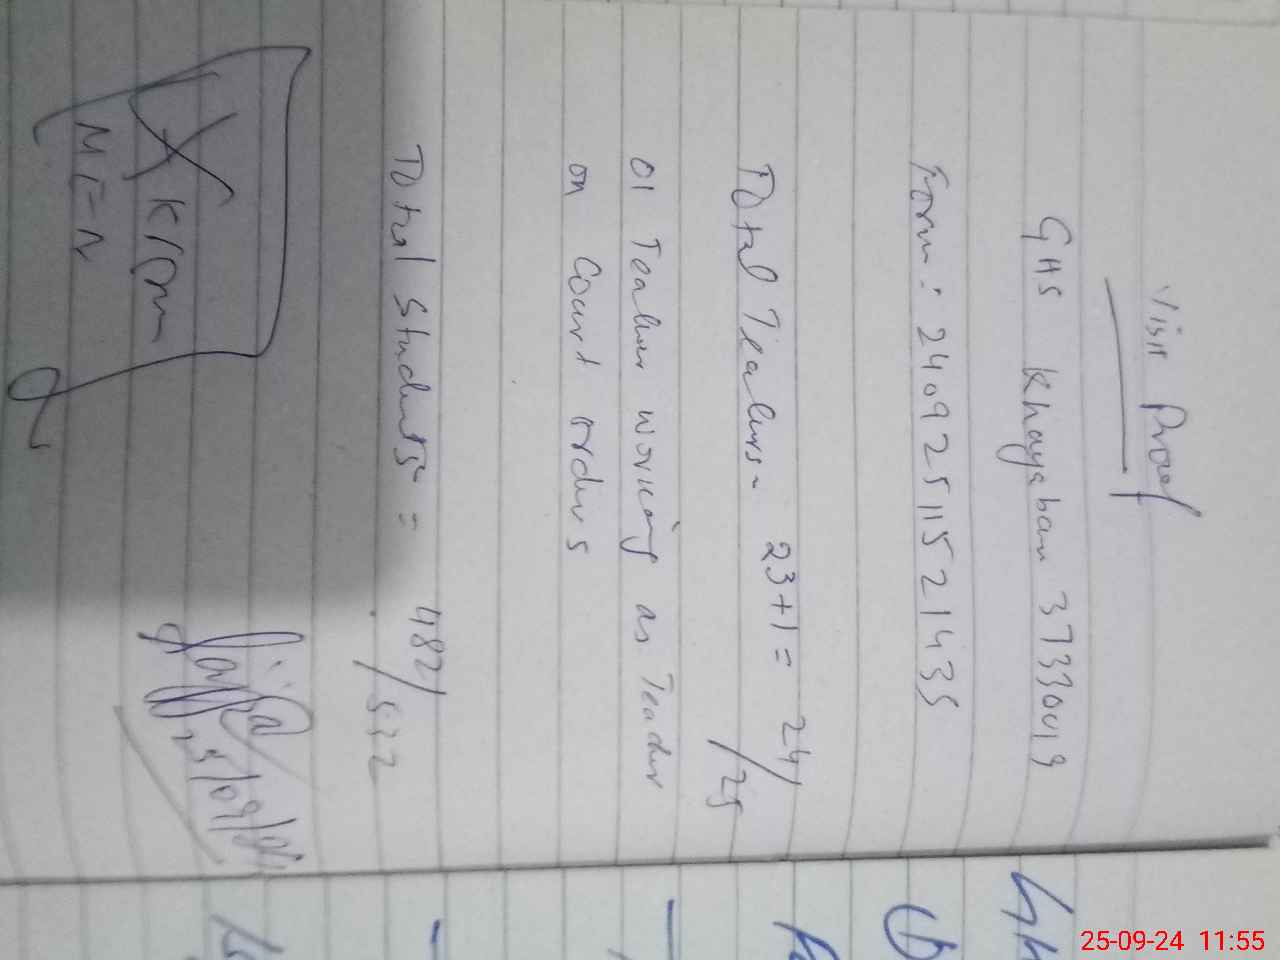 Visit Proof
GHS Khayaban 37330019
Form: 24092511521435
Total Teachers = 23+1 = 24/25
01 Teacher working as Teacher
on Court orders
Total Students = 482/532
25-09-24 11:55